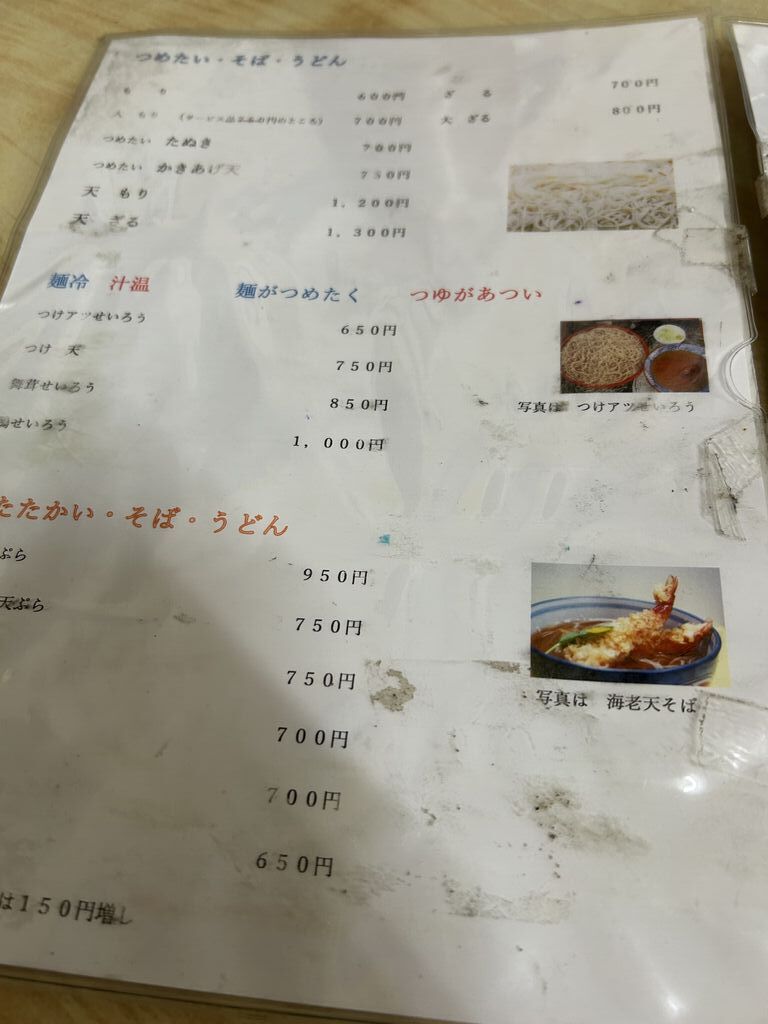 つめたい・そば・うどん
もり 600円 ざる 700円
大 もり 700円 大 ざる 800円
つめたい たぬき 700円
つめたい かきあげ天 750円
天 もり 1,200円
天 ざる 1,300円
麺冷 汁温 麺がつめたく つゆがあつい
つけアツせいろう 650円
つけ 天 750円
舞茸せいろう 850円
せいろう 1,000円
写真は つけアツせいろう
たたかい・そば・うどん
ぷら 950円
天ぷら 750円
750円
700円
700円
650円
写真は 海老天そば
は150円増し